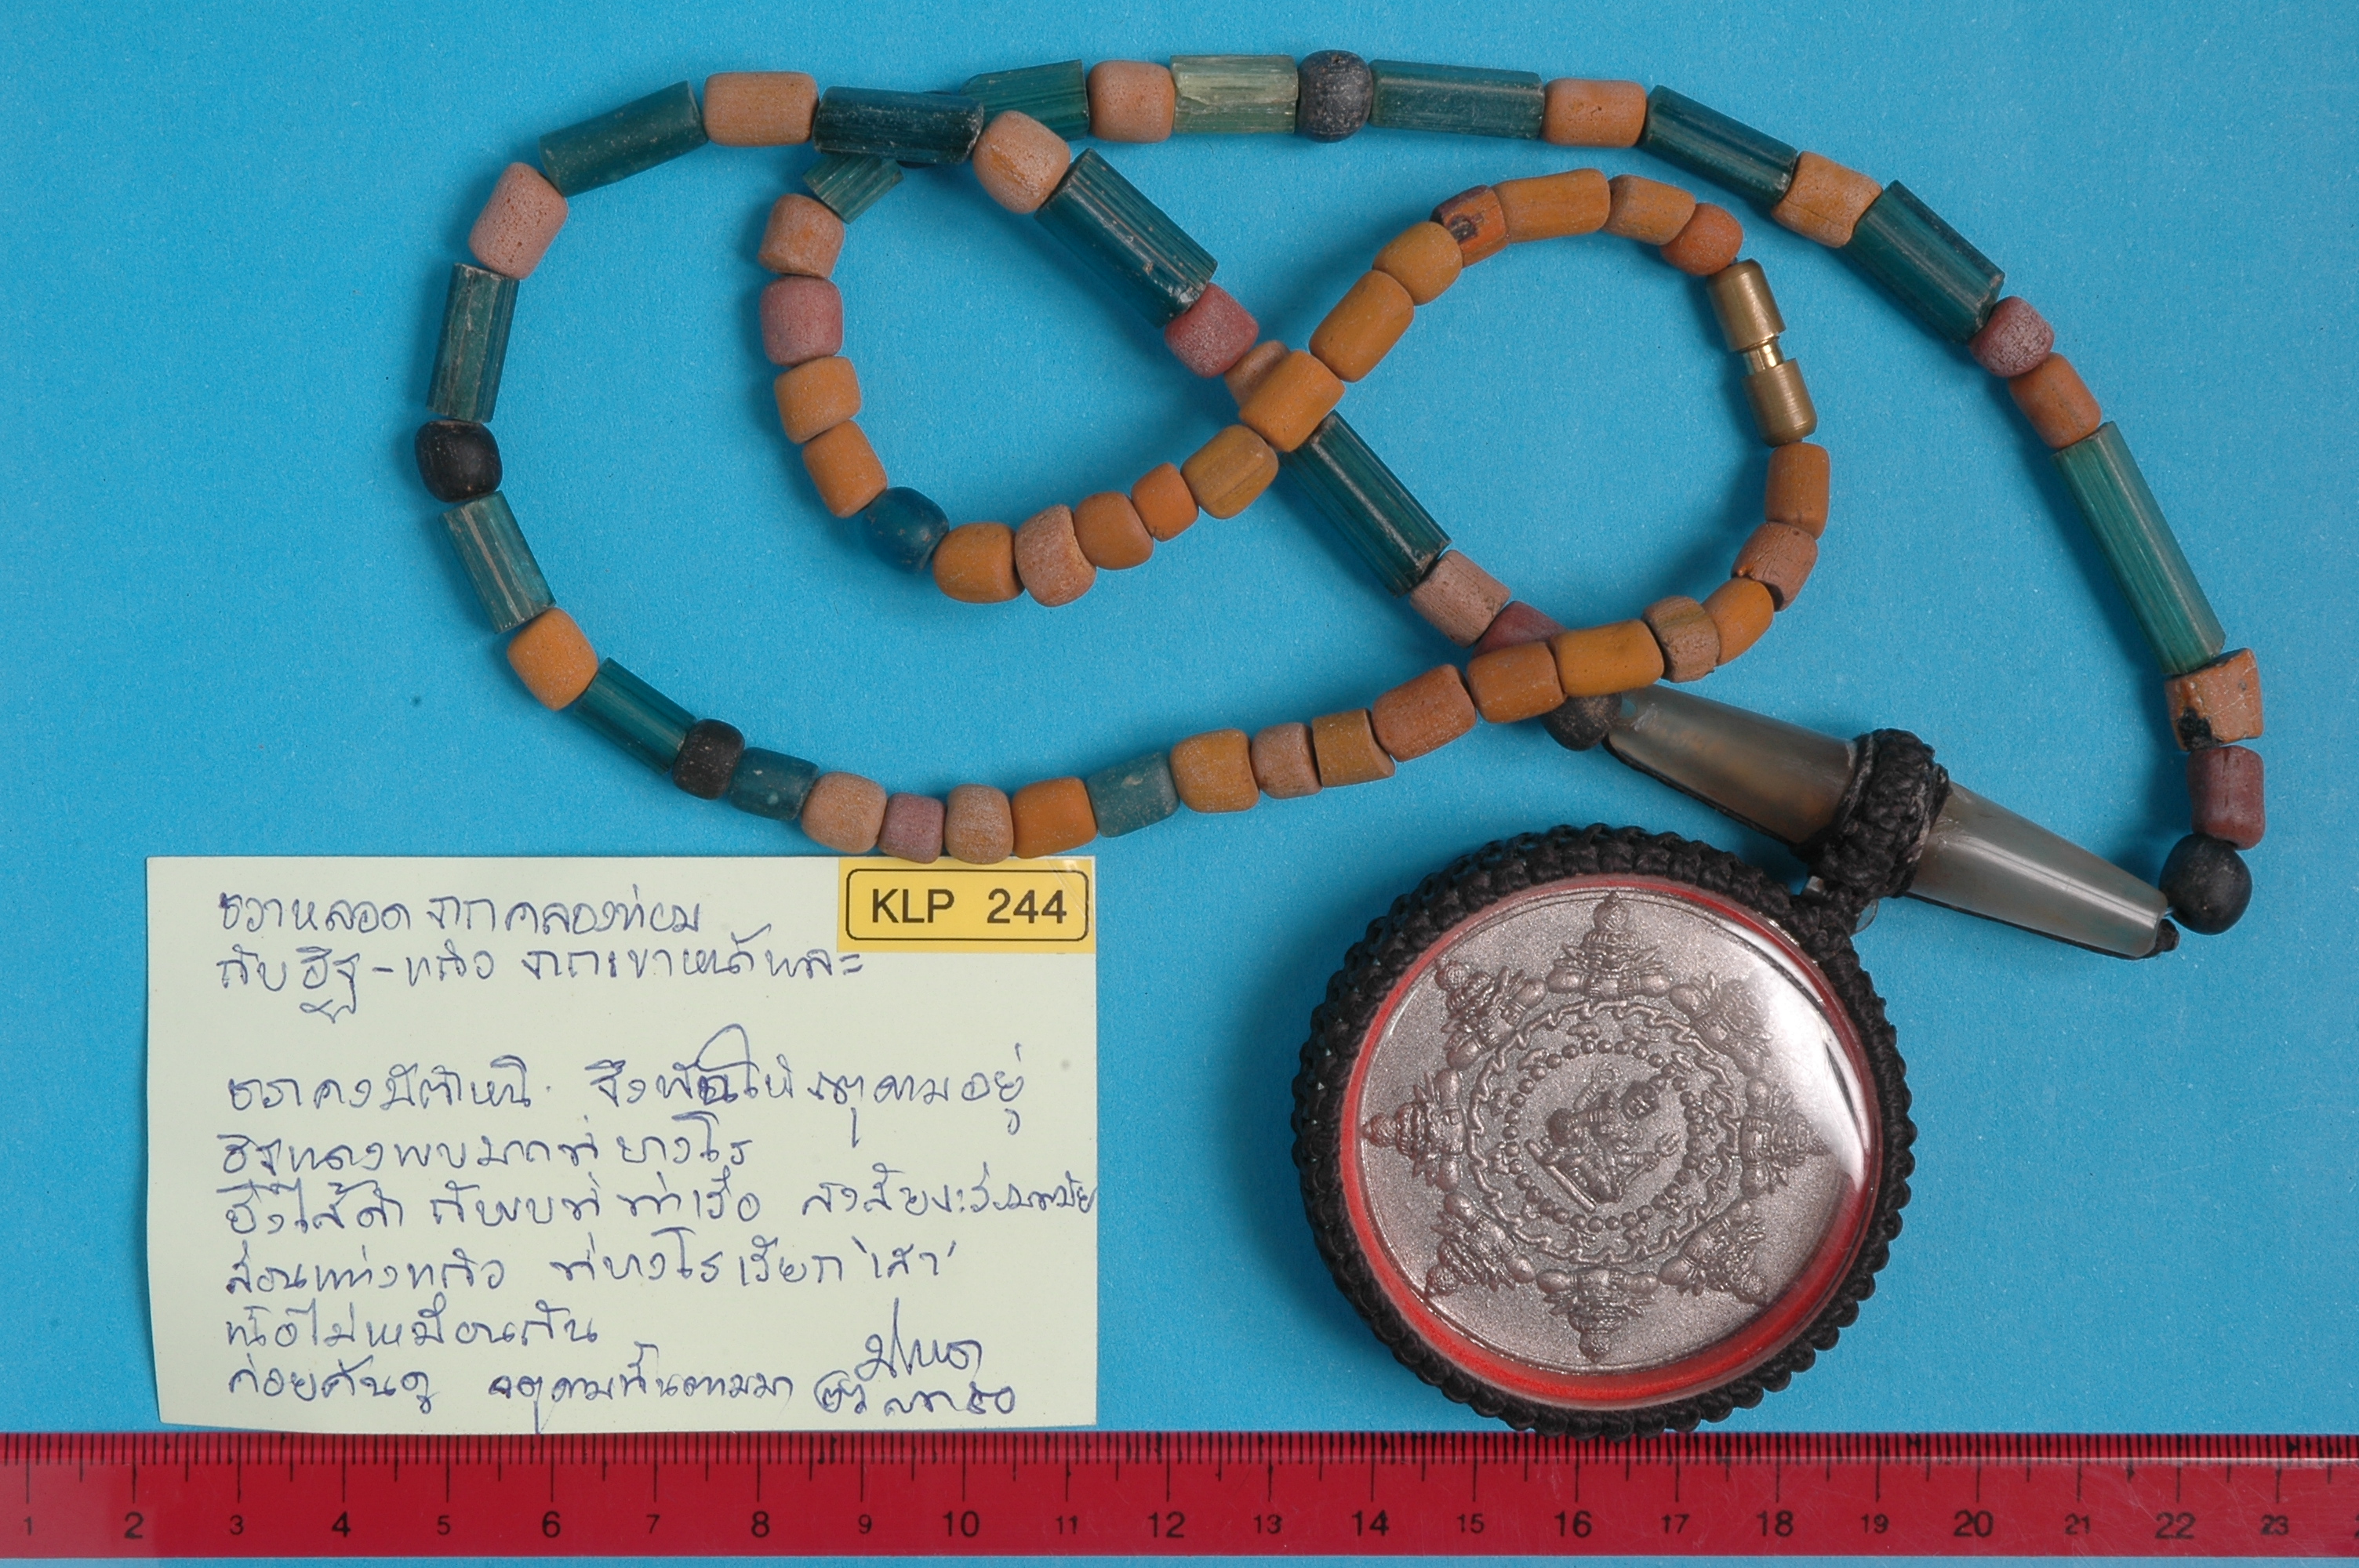 KLP 244
หลอด จากคลองท่อม
กับ อิฐ-แก้ว จากเขาหน้า
คงมีตำหนิ จึง ให้ จตุคามอยู่
อิฐแดงพบมากที่บางโร
ยิ่งไส้ดำ ก็พบที่ท่าเรือ สงสัยจะร่วมสมัย
ส่วนแท่งแก้ว ที่บางโรเรียก 'เสา'
เนื้อไม่เหมือนกัน
ค่อยค้นดู จตุคามนั้นตามมา
1 2 3 4 5 6 7 8 9 10 11 12 13 14 15 16 17 18 19 20 21 22 23